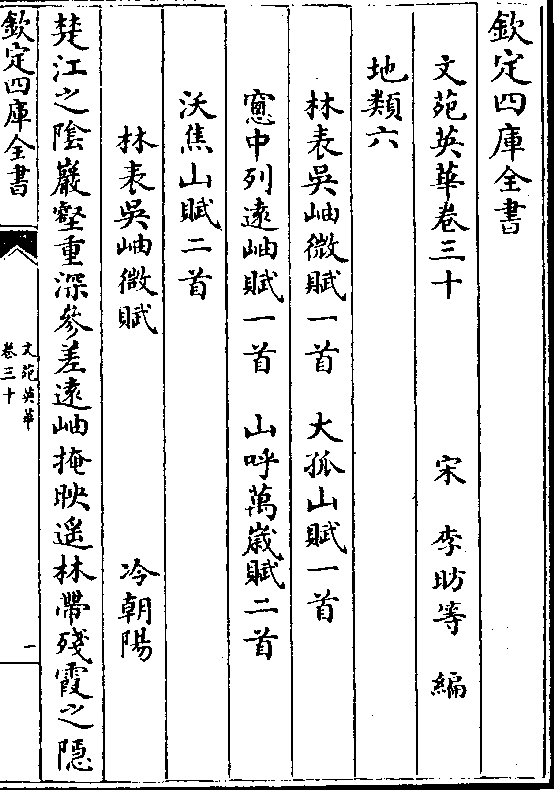 欽定四庫全書
文苑英華卷三十 宋 李昉等 編
地類六
林表吳岫微賦一首 大孤山賦一首
窻中列遠岫賦一首 山呼萬歲賦二首
沃焦山賦二首
林表吳岫微賦 冷朝陽
楚江之陰巖壑重深參差遠岫掩映遥林帶殘霞之隱
欽定四庫全書
文苑英華
卷三十
一